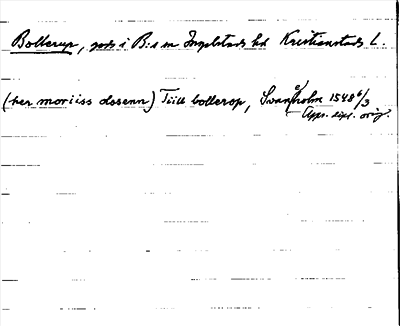 Bollerup, gods i B:s sn Ingelstads hd Kristianstads L.
(her moriiss dosenn) Tiill bollerop, Svan(e)holm 1548 6/3
Apps. dipl. orig.